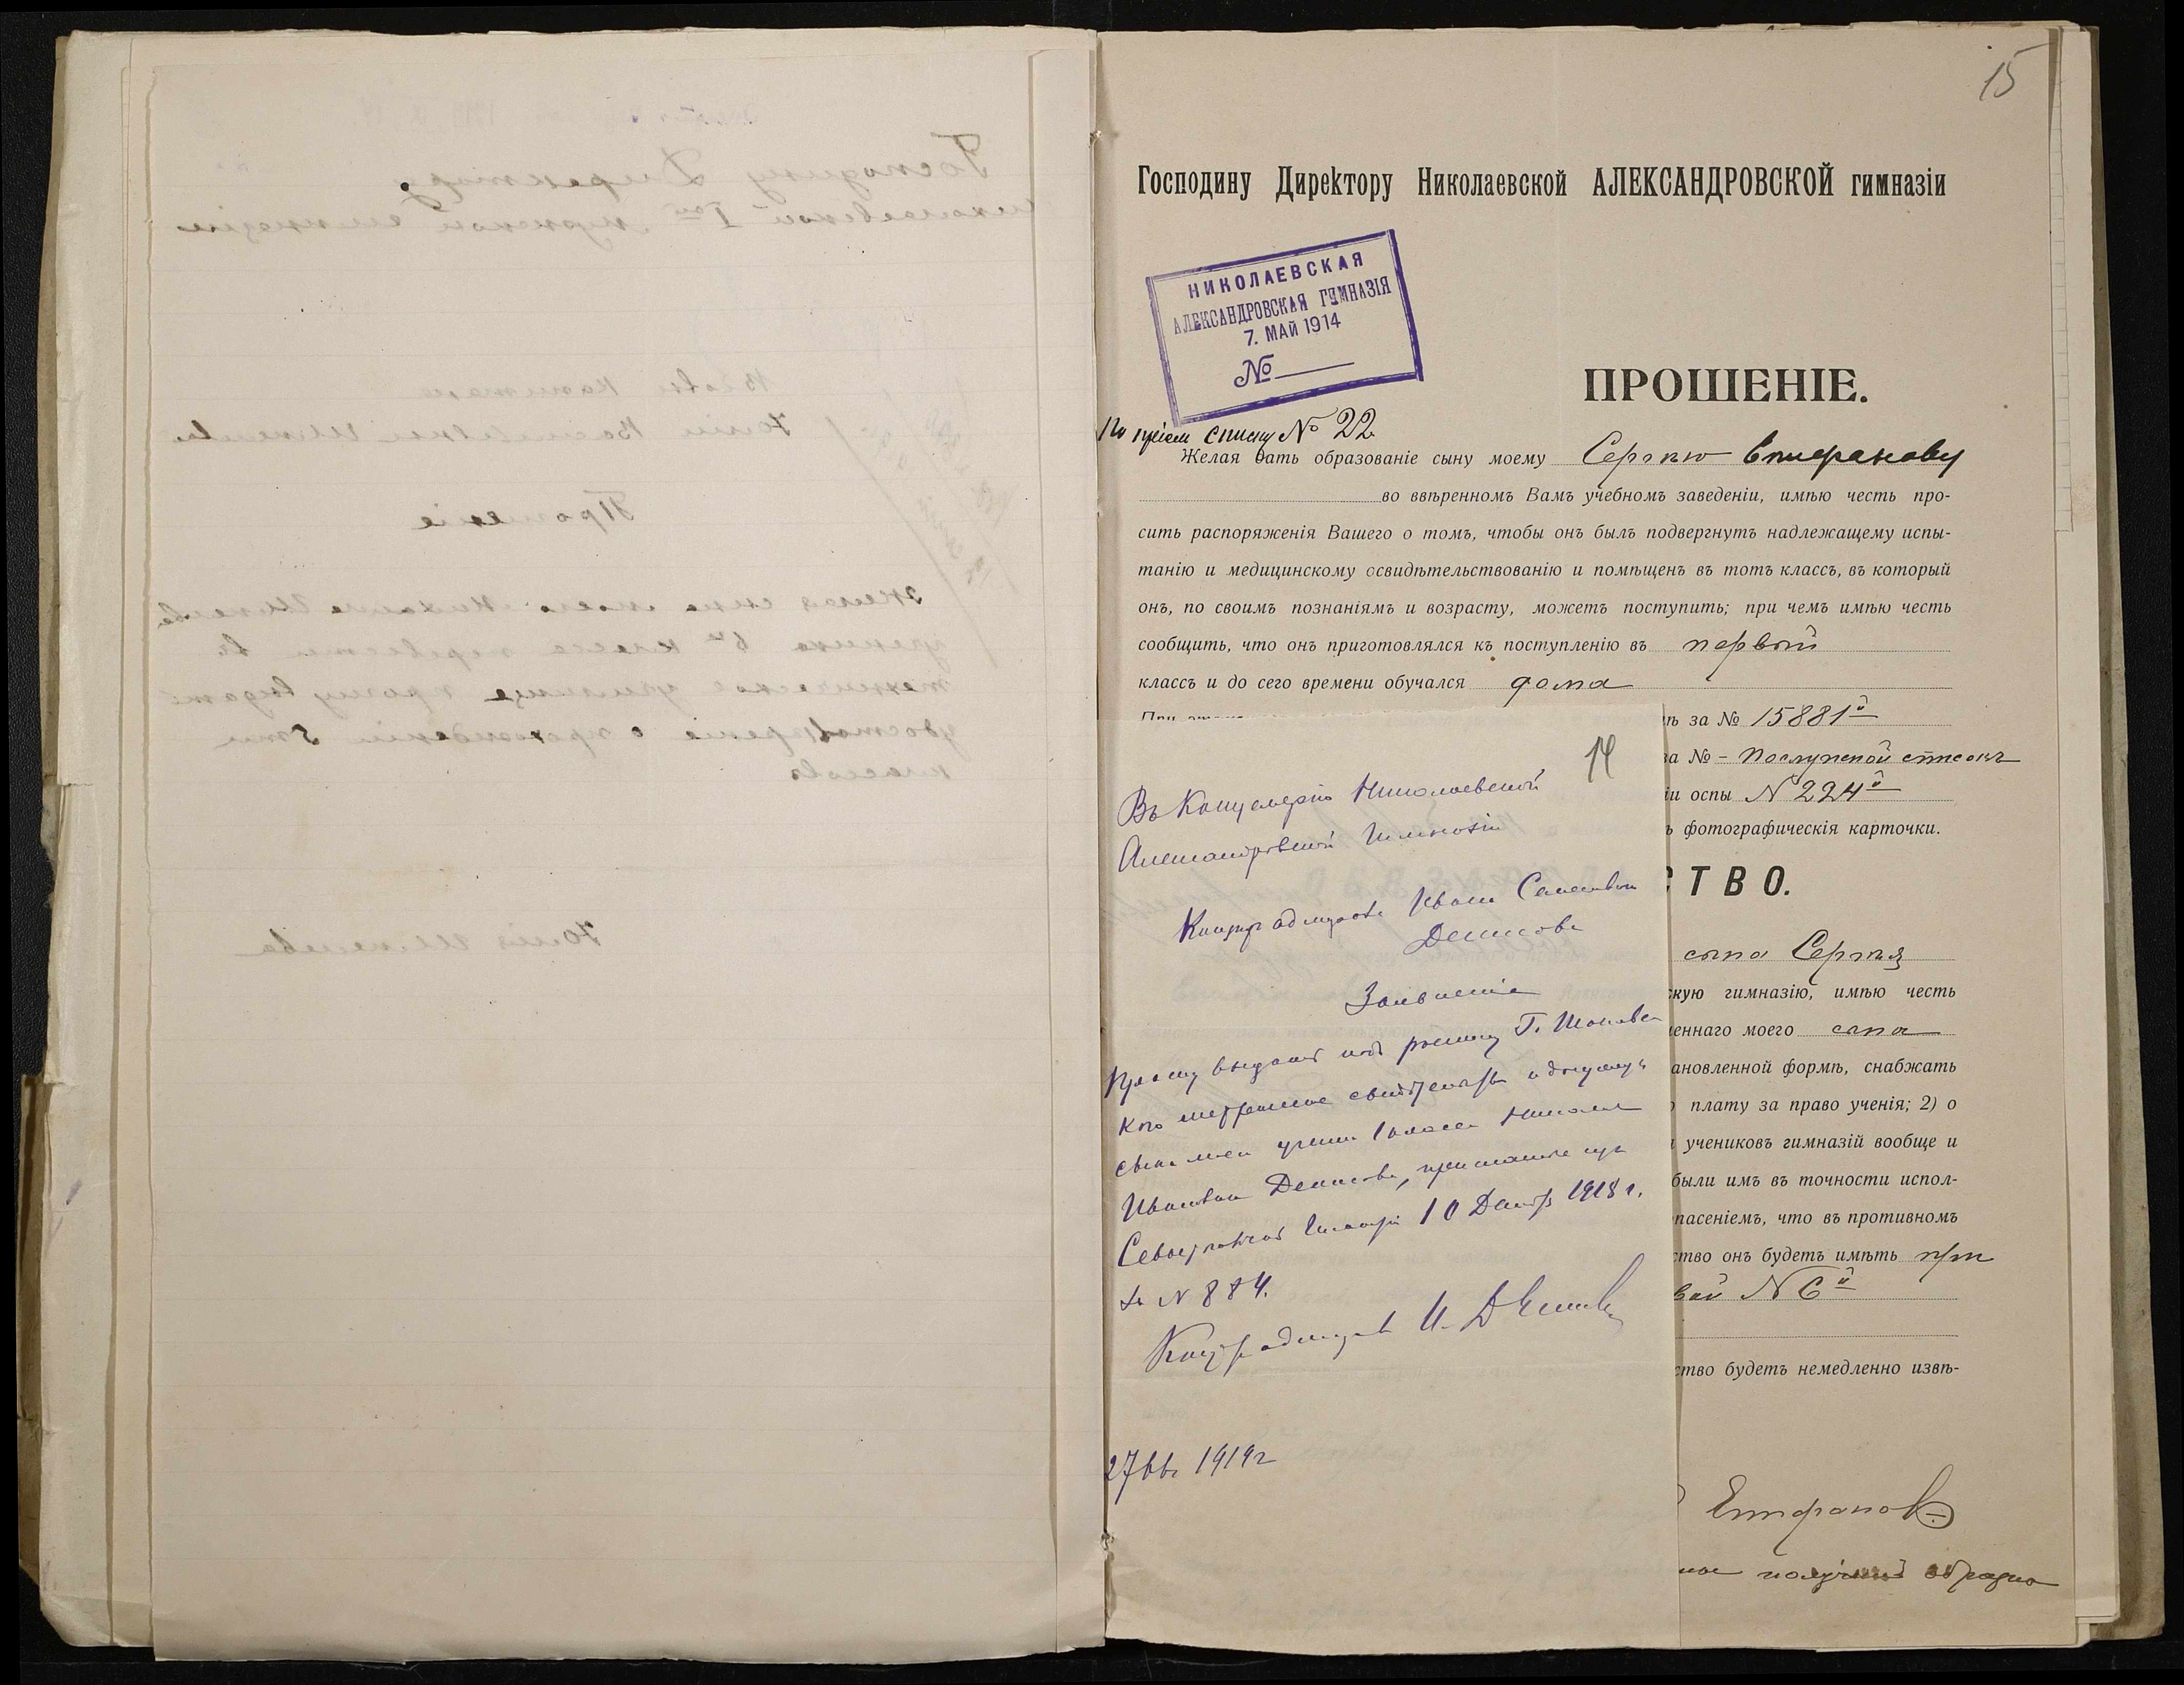 15
Господину Директору Николаевской АЛЕКСАНДРОВСКОЙ гимназіи
НИКОЛАЕВСКАЯ
АЛЕКСАНДРОВСКАЯ ГИМНАЗІЯ
7. МАЙ 1914
№
ПРОШЕНІЕ.
По пріемн списку № 22
Желая дать образованіе сыну моему Сергѣю Епифанову
во ввѣренномъ Вамъ учебномъ заведеніи, имѣю честь про-
сить распоряженія Вашего о томъ, чтобы онъ былъ подвергнутъ надлежащему испы-
танію и медицинскому освидѣтельствованію и помѣщенъ въ тотъ классъ, въ который
онъ, по своимъ познаніямъ и возрасту, можетъ поступить; при чемъ имѣю честь
сообщить, что онъ приготовлялся къ поступленію въ первый
классъ и до сего времени обучался дома
за № 15881й
за № – Послужной списокъ
оспы № 224й
фотографическія карточки.
СТВО.
сына Сергѣя
скую гимназію, имѣю честь
еннаго моего сына
ановленной формѣ, снабжать
плату за право ученія; 2) о
учениковъ гимназій вообще и
были имъ въ точности испол-
пасеніемъ, что въ противномъ
ство онъ будетъ имѣть при
вой № 6й
ство будетъ немедленно извѣ-
Епифанов
получилъ обратно
14
Въ Канцелярію Николаевской
Александровской Гимназіи
Ивана Семеновича
Денисова
Заявленіе
Прошу выдать подъ росписку Г.
сына моего ученика 1 класса Николая
Ивановича Денисова,
10 Декабр 1918 г.
за № 884.
И. Денисов
27 1919 г
Господину Директору
Николаевской Iой мужской гимназіи
Вдовы капитана
Юліи Васильевны
Прошеніе
Желая сына моего Михаила
ученика 6го класса перевести въ
техническое училище прошу выдать
удостовѣреніе о прохожденіи 5ти
классовъ
Юлія